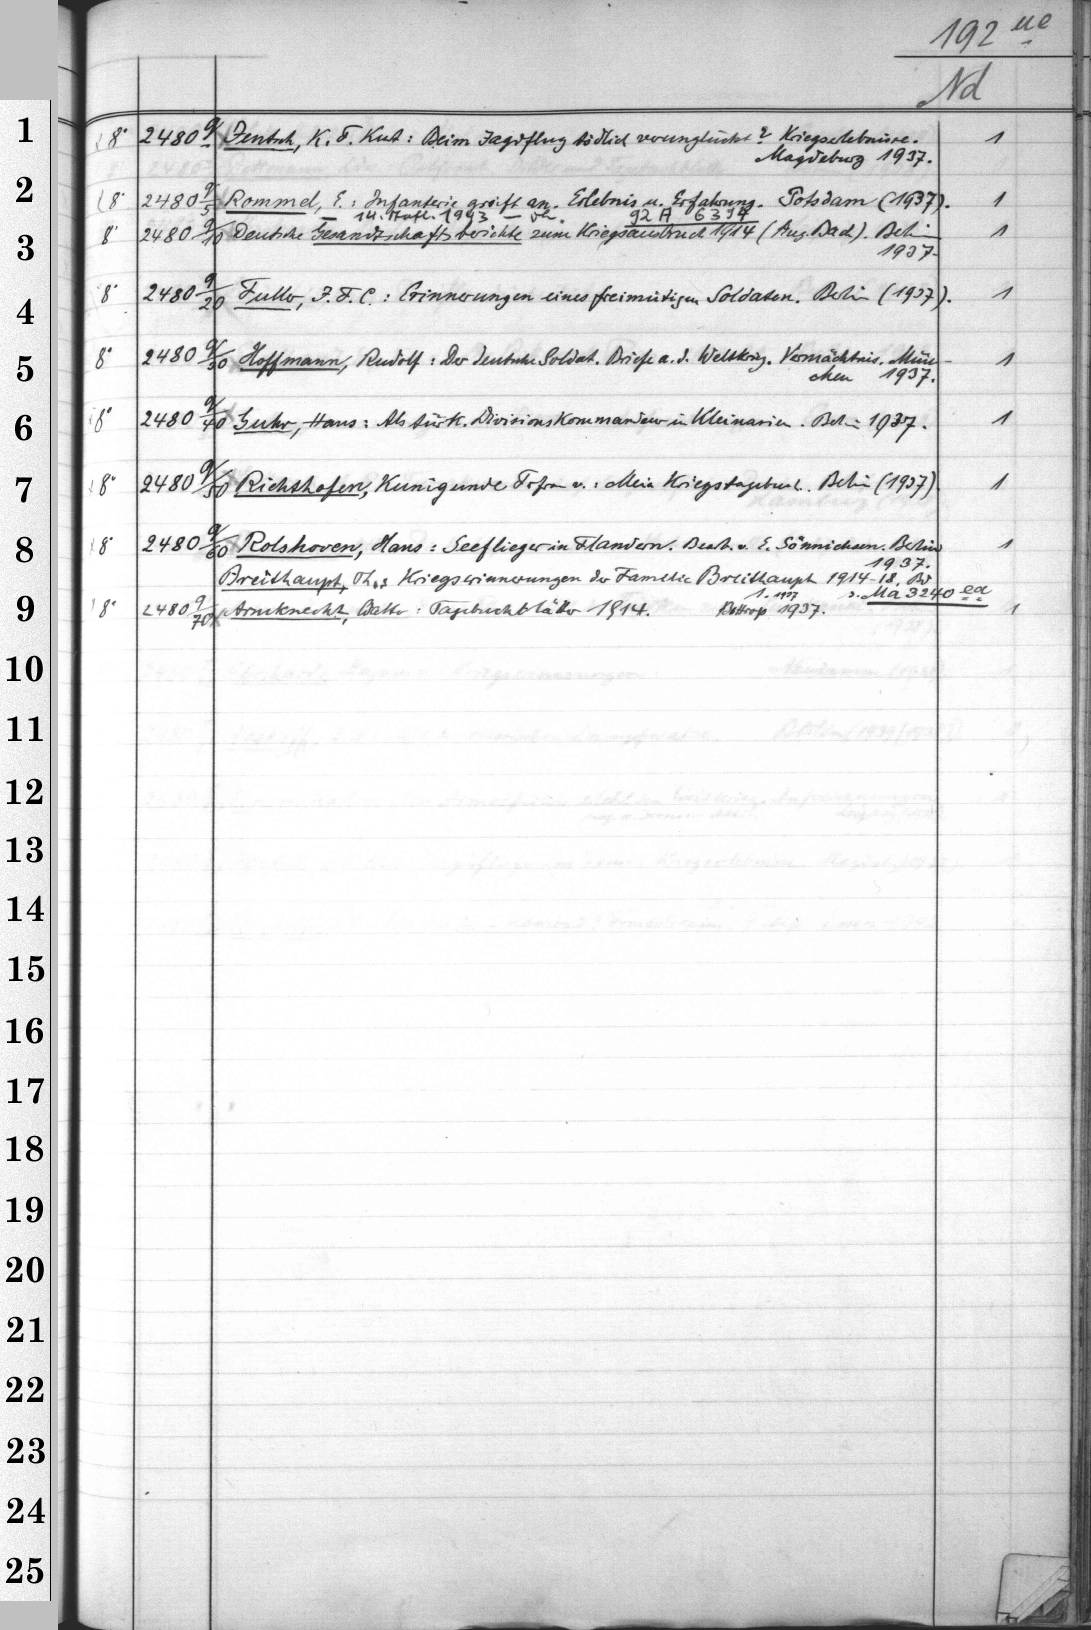 192 ue
Nd
1 8° 2480 q Jentsch, K. F. Kurt: Beim Jagdflug tödlich verunglückt? Kriegserlebnisse. 1
Magdeburg 1937.
2 8° 2480 q/5 Rommel, E.: Infanterie greift an. Erlebnis u. Erfahrung. Potsdam (1937). 1
— 14. Aufl. 1943 — 92 A 6394
3 8° 2480 q/10 Deutsche Gesandtschaftsberichte zum Kriegsausbruch 1914 (Aug. Bach). Berlin 1
1937.
4 8° 2480 q/20 Fuller, J. F. C.: Erinnerungen eines freimütigen Soldaten. Berlin (1937). 1
5 8° 2480 q/30 Hoffmann, Rudolf: Der deutsche Soldat. Briefe a. d. Weltkrieg. Vermächtnis. Mün- 1
chen 1937.
6 8° 2480 q/40 Guhr, Hans: Als türk. Divisionskommandeur in Kleinasien. Berlin 1937. 1
7 8° 2480 q/50 Richthofen, Kunigunde Frfr v.: Mein Kriegstagebuch. Berlin (1937). 1
8 8° 2480 q/60 Rolshoven, Hans: Seeflieger in Flandern. Bearb. v. E. Sönnichsen. Berlin 1
1937.
Breithaupt, Th.: Kriegserinnerungen der Familie Breithaupt 1914-18. Bd
1. 1937 s. Ma 3240 ea
9 8° 2480 q/70 Armknecht, Walter: Tagebuchblätter 1914. Bottrop 1937. 1
10
11
12
13
14
15
16
17
18
19
20
21
22
23
24
25